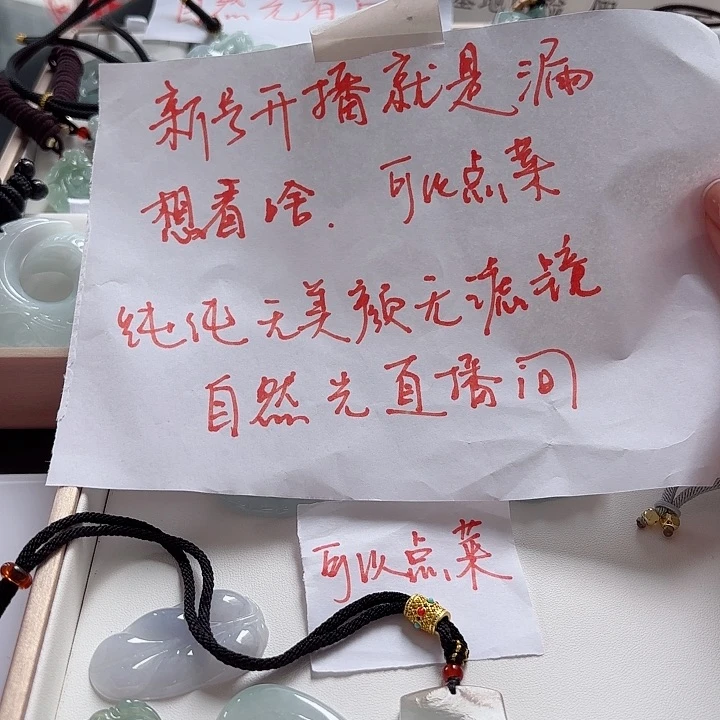 自然光看
新号开播就是漏
想看啥.可以点菜
纯纯无美颜无滤镜
自然光直播间
可以点菜